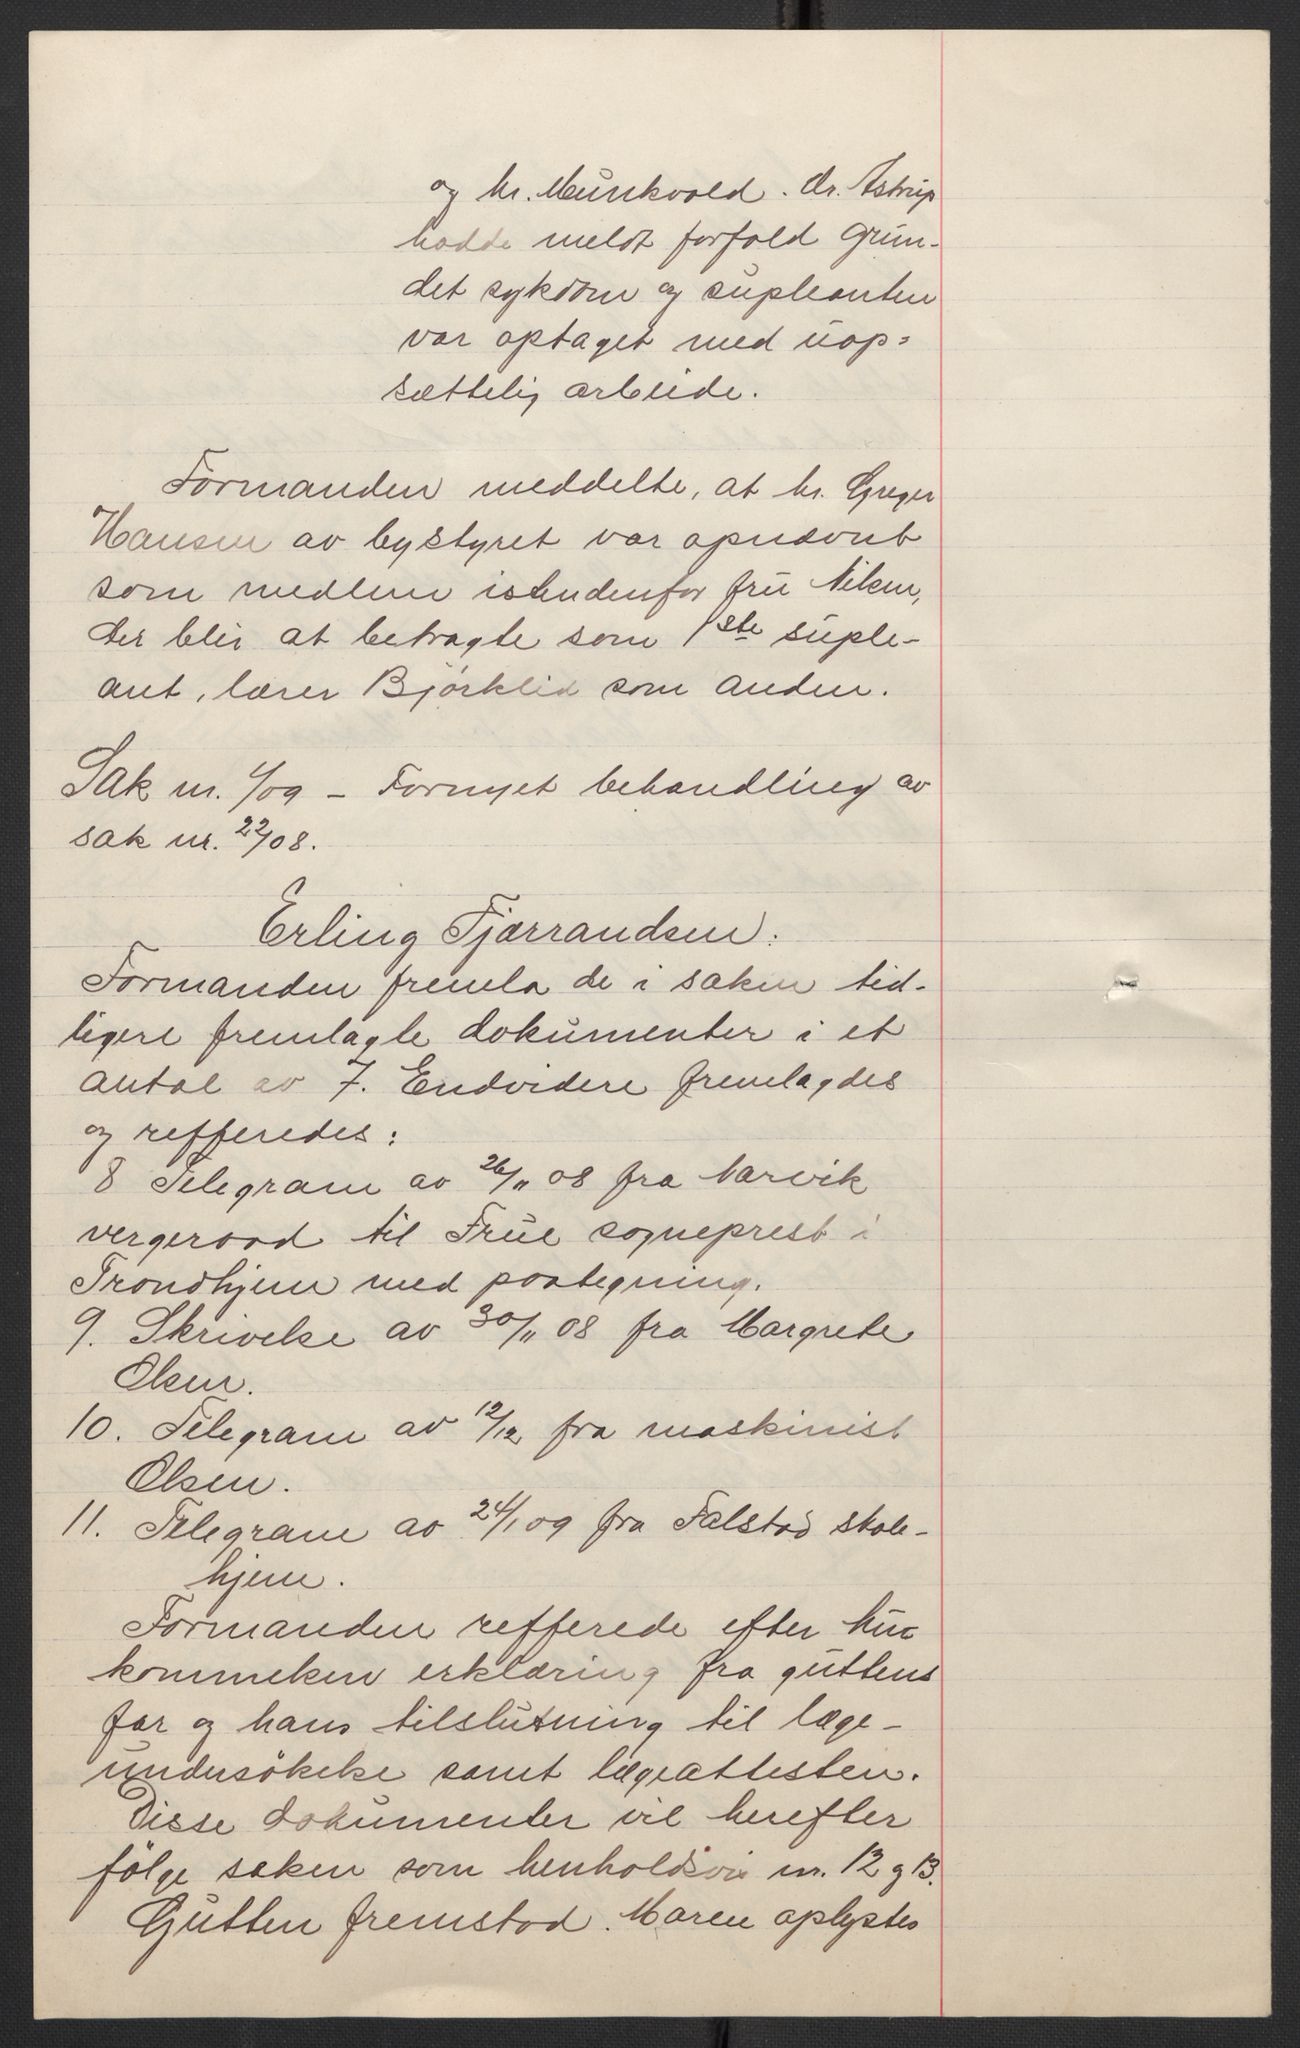 og hr. Munkvold. Dr. Astrup
hadde meldt forfald grun-
det sykdom og supleanten
var optaget med uop=
sættelig arbeide.
Formanden meddelte, at hr. Greger
Hansen av bystyret var opnævnt
som medlem istendenfor fru Nilsen,
der blir at betragte som 1ste suple-
ant, lærer Bjørklid som anden.
Sak nr. 1/09 - Fornyet behandling av
sak nr. 22/08.
Erling Fjærrandsen:
Formanden fremla de i saken tid-
ligere fremlagte dokumenter i et
antal av 7. Endvidere fremlagdes
og refferedes:
8 Telegram av 26/11 08 fra Narvik
vergeraad til Frue sogneprest i
Trondhjem med paategning.
9. Skrivelse av 30/11 08 fra Margrete
Olsen.
10. Telegram av 12/12 fra maskinist
Olsen.
11. Telegram av 24/1 09 fra Falstad skole-
hjem.
Formanden refferede efter hu-
kommelsen erklæring fra guttens
far og hans tilslutning til læge-
undersökelse samt lægeattesten.
Disse dokumenter vil herefter
fölge saken som henholdsvis nr. 12 og 13.
Gutten fremstod. Moren oplystes